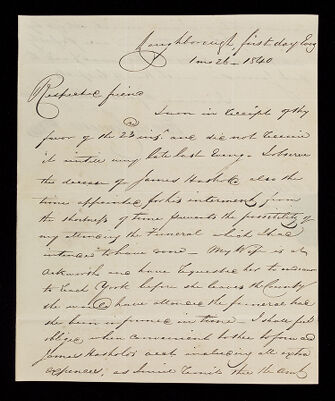 Loughborough first day Evg
1 mo 26 - 1840
Respected friend
I am in receipt of thy
favor of the 23 inst and did not receive
it until very late last Eveng I observe
the decease of James also the
time appointed for his interment, from
the shortness of time prevents the possibility of
my attending the Funeral which I had
intended to have done - My Wife is at
Ackworth and have requested her to endeavor
to reach York before she leaves the County
she would have attended the funeral had
she been informed in time - I shall feel
obliged when convenient to thee to forward
James acct including all extra
expences, as I will remit thee the amt